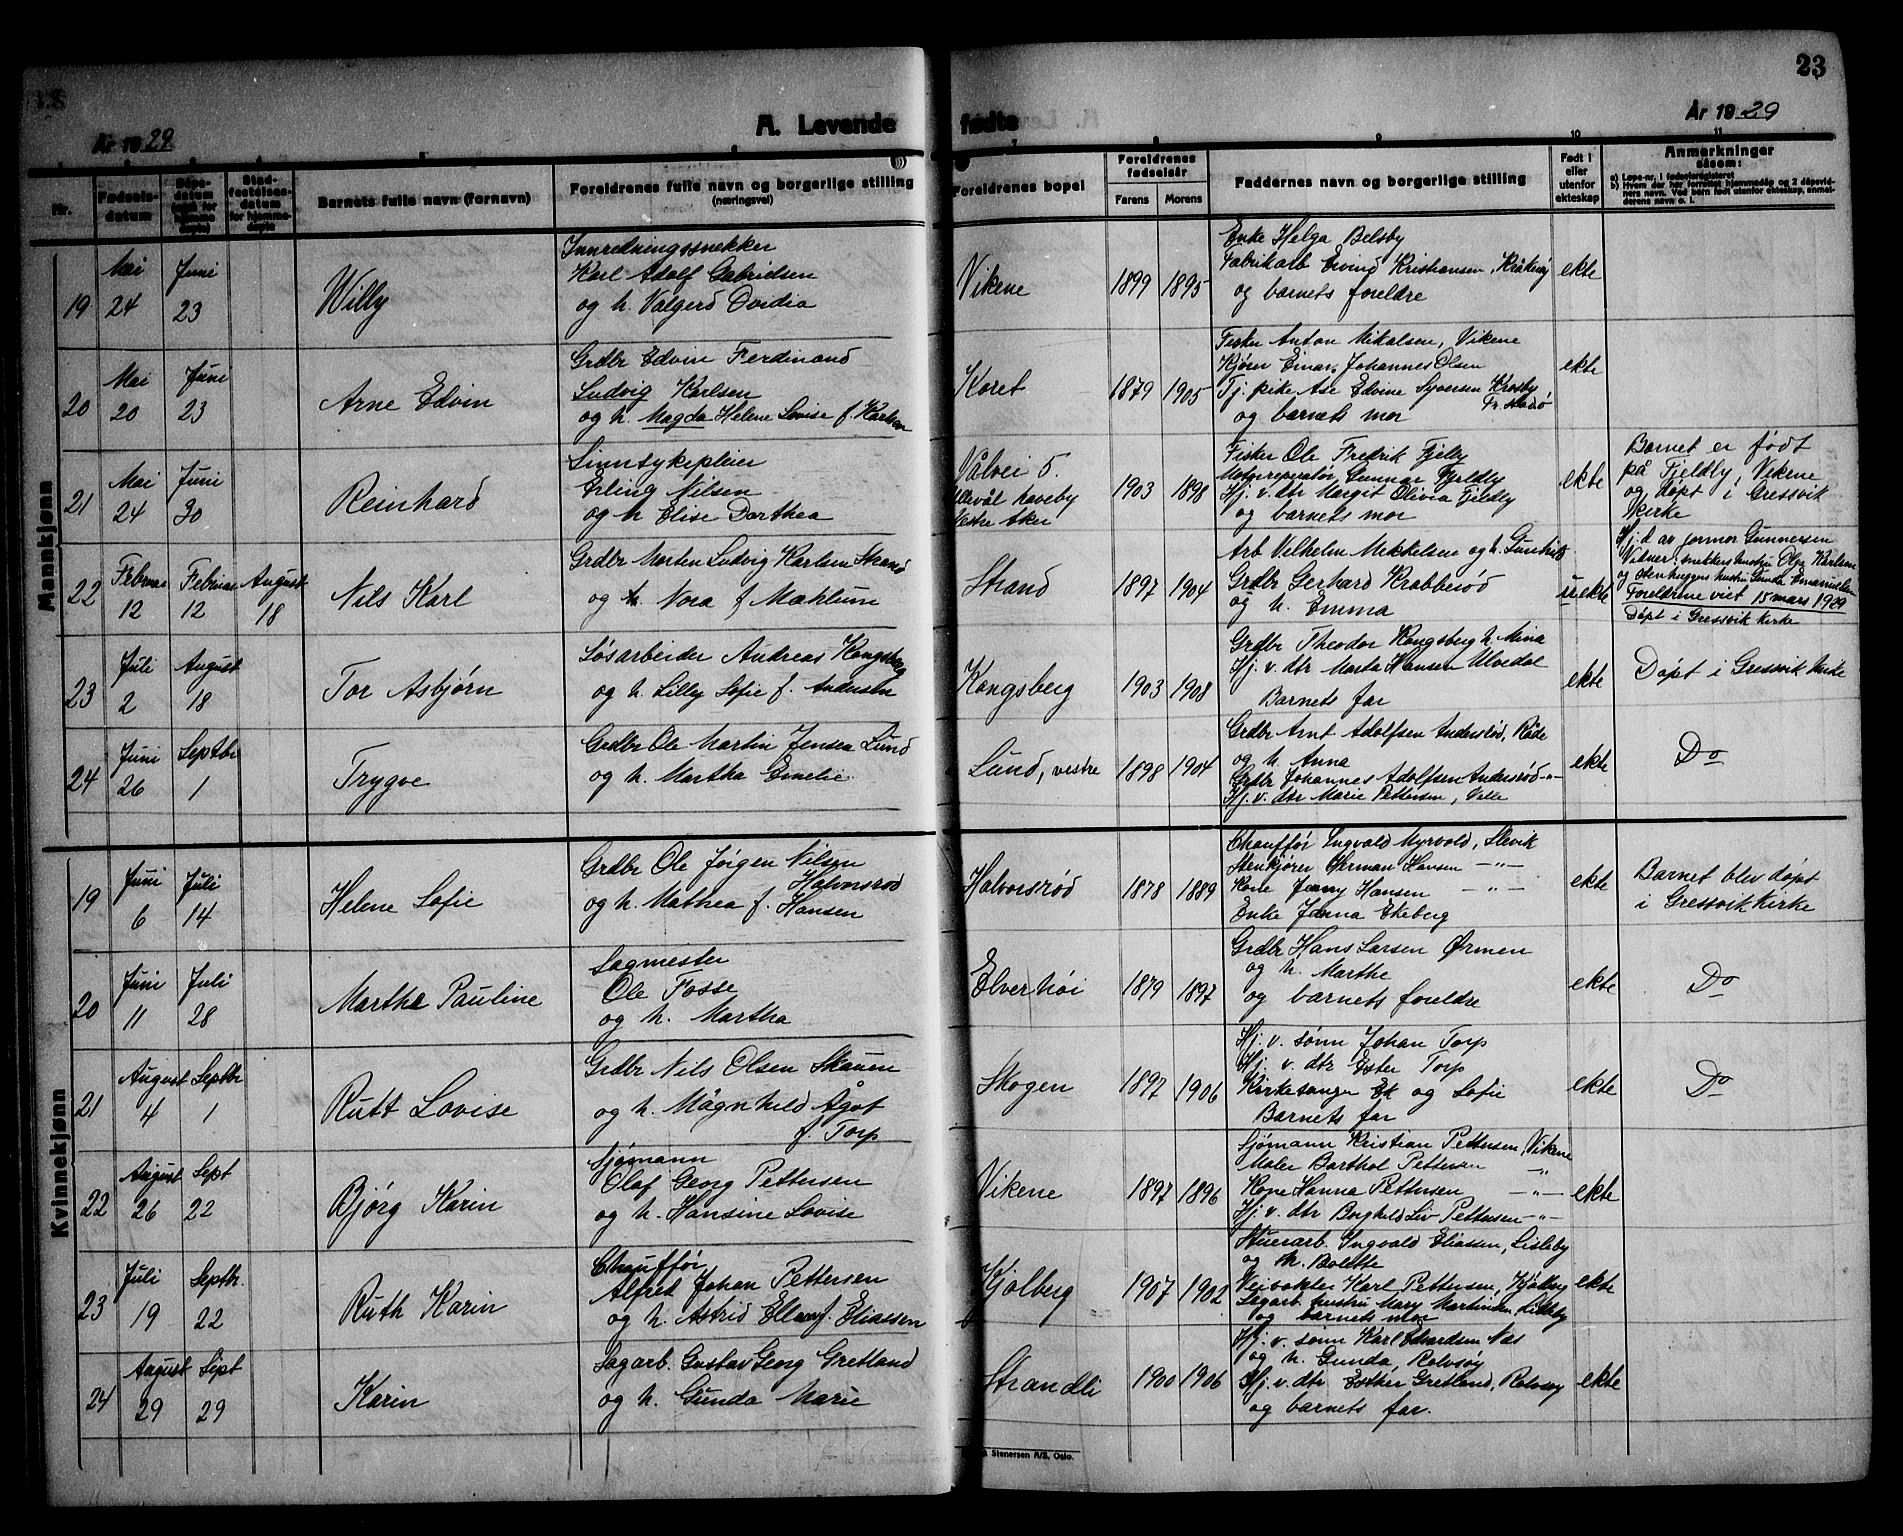 23
År 1929
A. Levende fødte
År 1929
Nr.
Fødsels-
datum
Dåps-
datum
Stad-
festelses-
datum
for hjemme-
døpte
Barnets fulle navn (fornavn)
Foreldrenes fulle navn og borgerlige stilling
(næringsvei)
Foreldrenes bopel
Foreldrenes
fødselsår
Farens
Morens
Faddernes navn og borgerlige stilling
Født i
eller
utenfor
ekteskap
Anmerkninger
såsom:
a) Løpe-nr. i fødselsregisteret
b) Hvem der har forrettet hjemmedåp og 2 dåpsvid-
ners navn. Ved barn født utenfor ekteskap, anmel-
derens navn o. l.
Mannkjønn
19
Mai
24
Juni
23
Willy
Innredningssnekker
Karl Adolf Gabrielsen
og h. Valgerd Ovidia
Vikene
1899
1895
Enke Helga Belsby
Fabrikarb Eivind Kristiansen, Kråkerøy
og barnets foreldre
ekte
20
Mai
20
Juni
23
Arne Edvin
Grdbr Edvin Ferdinand
Ludvig Karlsen
og h. Magda Helene Lovise f. Karlsen
Koret
1879
1905
Fisker Anton Mikalsen, Vikene
Kjører Einar Johannes Olsen
Tj. pike Ase Edvine Syversen Krosby
og barnets mor
ekte
21
Mai
24
Juni
30
Reinhard
Sinnsykepleier
Erling Nilsen
og h Elise Dorthea
Vålvei 5.
Ullevål haveby
Vestre Aker
1903
1898
Fisker Ole Fredrik Fjelby
Motorreperatør Gunnar Fjeldby
Hj. v. dtr Margit Olivia Fjeldby
og barnets mor
ekte
Barnet er født
på Fjeldby Vikene
og døpt i Gressvik
kirke
22
Februar
12
Februar
12
August
18
Nils Karl
Grdbr Morten Ludvig Karlsen Strand
og h. Nora f. Maklum
Strand
1897
1904
Arb Vilhelm Mikkelsen og h. Gunhild
Grdbr Gerhard Krabberød
og h. Emma
uekte
Hj.d av jormor Gunnersen
Vidner: smedders hustru Olga Karlsen
og stenhuggers hustru Gunda Emanuelsen
Foreldrene viet 15 mars 1929
Døpt i Gressvik kirke
23
Juli
2
August
18
Tor Asbjørn
Løsarbeider Andreas Kongsberg
og h. Lilly Sofie f. Andersen
Kongsberg
1903
1908
Grdbr Theodor Kongsberg h. Mina
Hj. v. dtr Marta Hansen Ulvedal
Barnets far
ekte
Døpt i Gressvik kirke
24
Juni
26
Septbr
1
Trygve
Grdbr Ole Martin Jensen Lund
og h. Martha Emelie
Lund, vestre
1898
1904
Grdbr Arnt Adolfsen Andersrød, Råde
og h. Anna
Grdbr Johannes Adolfsen Andersrød -"-
Hj. v. dtr Marie Pettersen, Velle
ekte
Do
Kvinnekjønn
19
Juni
6
Juli
14
Helene Sofie
Grdbr Ole Jørgen Nilsen
Halvorsrød
og h. Mathea f. Hansen
Halvorsrød
1878
1889
Chauffør Ingvald Myrvold, Slevik
Stenkjører Herman Hansen -"-
Kone Jenny Hansen -"-
Enke Janna Ekeberg
ekte
Barnet blev døpt
i Gressvik Kirke
20
Juni
11
Juli
28
Martha Pauline
Sagmester
Ole Fosse
og h. Martha
Elverhøi
1879
1897
Grdbr Hans Larsen Ørmen
og h. Marthe
og barnets foreldre
ekte
Do
21
August
4
Septbr
1
Rutt Lovise
Grdbr Nils Olsen Skauen
og h. Magnhild Ågot
f. Torp
Skogen
1897
1906
Hj. v. sønn Johan Torp
Hj. v. dtr Ester Torp
Kirkesanger Ek og Sofie
Barnets far
ekte
Do
22
August
26
Sept
22
Bjørg Karin
Sjømann
Olaf Georg Pettersen
og h. Hansine Lovise
Vikene
1897
1896
Sjømann Kristian Pettersen, Vikene
Maler Barthol Pettersen -"-
Kone Hanna Pettersen -"-
Hj. v. dtr Borghild Liv Pettersen -"-
ekte
23
Juli
19
Septbr.
22
Ruth Karin
Chauffør
Alfred Johan Pettersen
og h. Astrid Ellen f. Eliassen
Kjølberg
1907
1902
Stuerarb. Ingvald Eliassen, Lisleby
og h. Bolette
Veivokter Karl Pettersen, Kjølberg
Sagarb. hustru Mary Martinsen, Lisleby
og barnets mor
ekte
24
August
29
Sept
29
Karin
Sagarb. Gustav Georg Gretland
og h. Gunda Marie
Strandli
1900
1906
Hj. v. sønn Karl Edvardsen Næs
og h. Gunda, Rolvsøy
Hj. v. dtr Esther Gretland, Rolvsøy
og barnets far.
ekte
Stenersen A/S, Oslo.